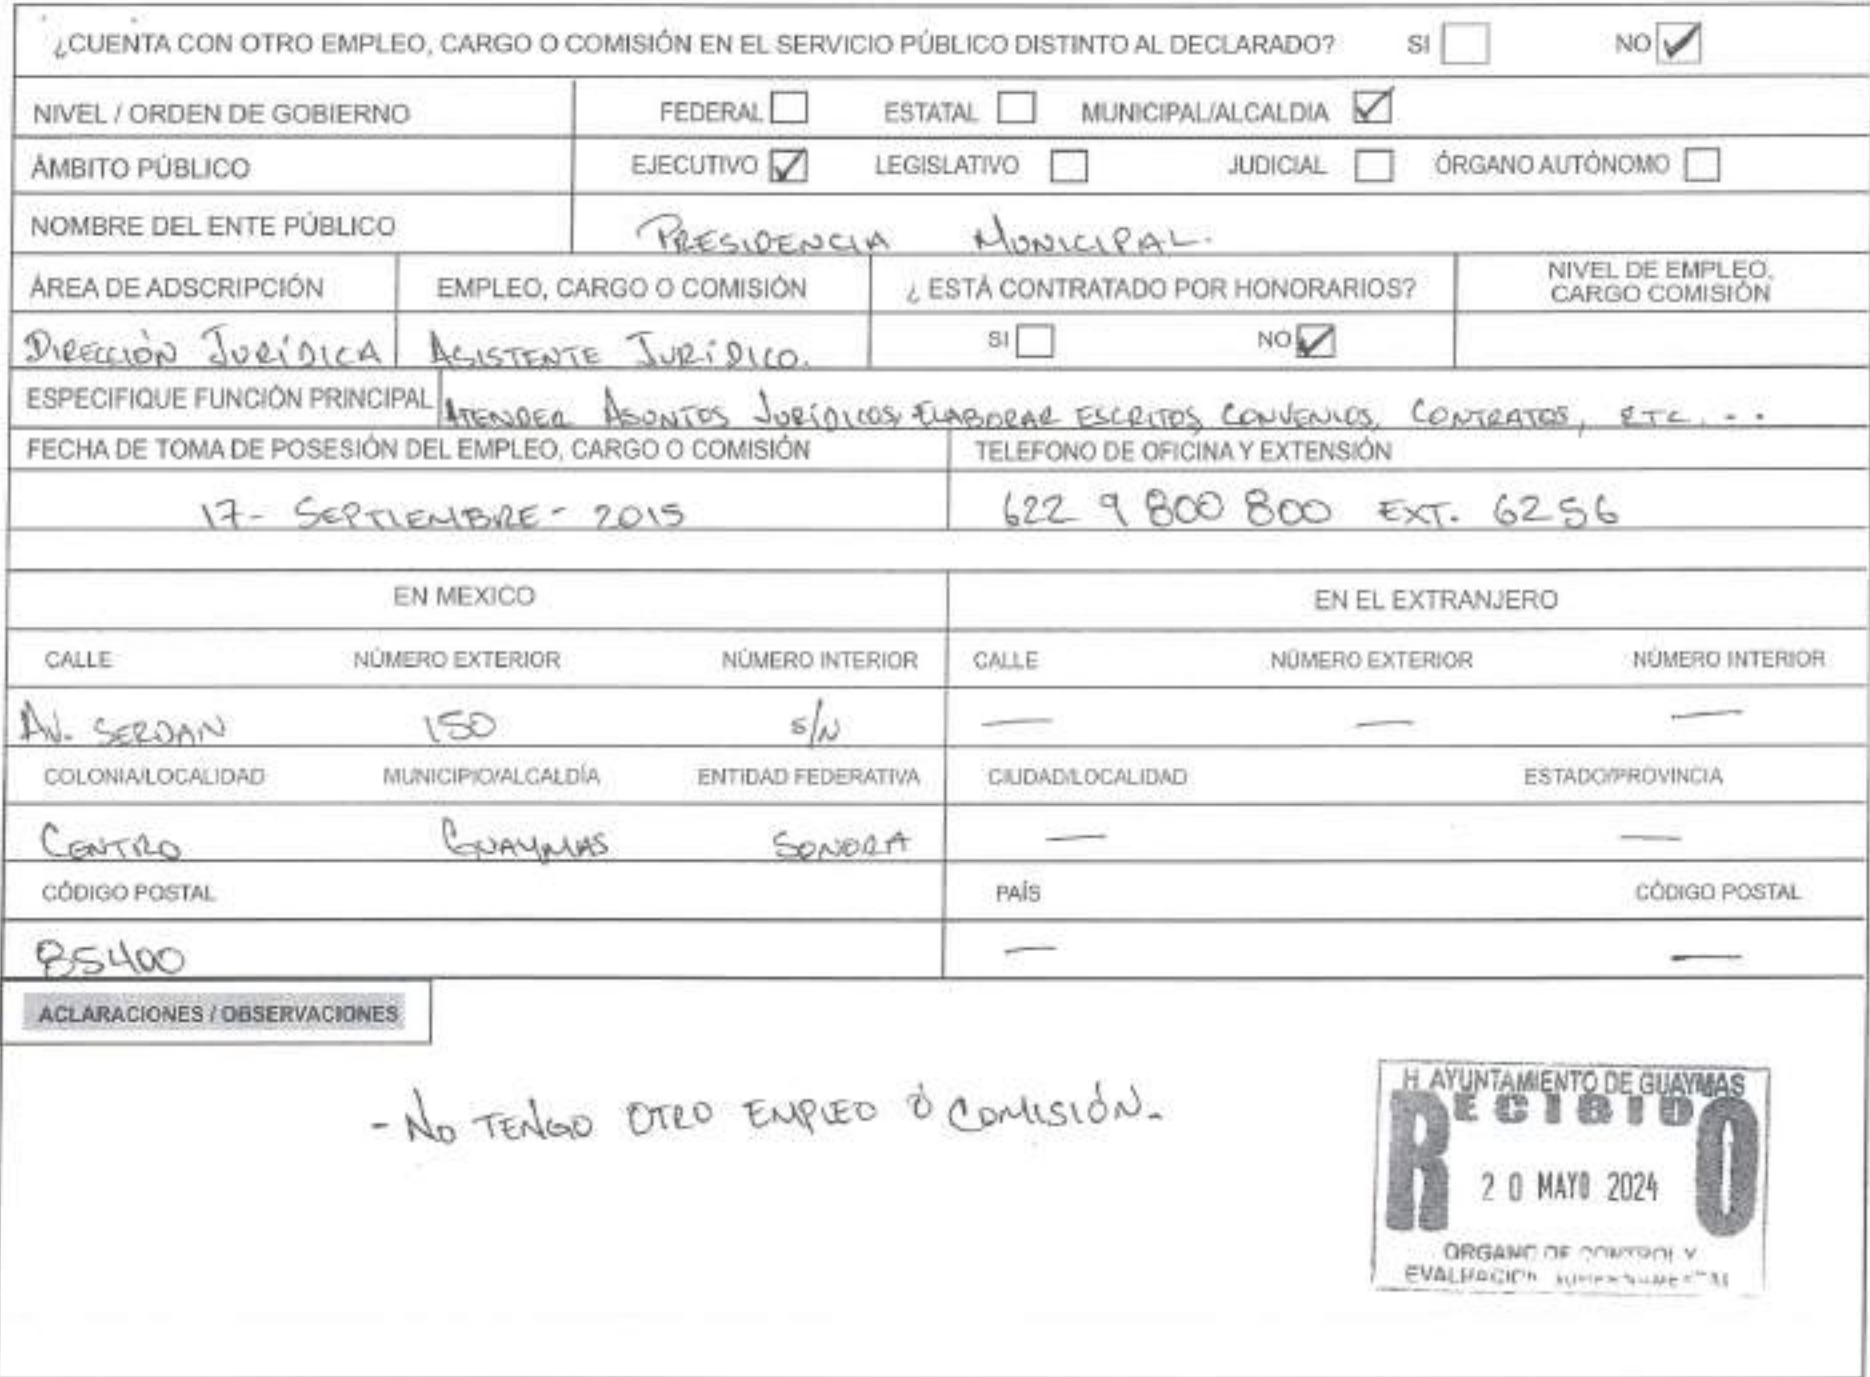 ¿CUENTA CON OTRO EMPLEO, CARGO O COMISIÓN EN EL SERVICIO PÚBLICO DISTINTO AL DECLARADO? SI NO
NIVEL / ORDEN DE GOBIERNO FEDERAL ESTATAL MUNICIPAL/ALCALDIA
ÁMBITO PÚBLICO EJECUTIVO LEGISLATIVO JUDICIAL ÓRGANO AUTÓNOMO
NOMBRE DEL ENTE PÚBLICO PRESIDENCIA MUNICIPAL.
ÁREA DE ADSCRIPCIÓN EMPLEO, CARGO O COMISIÓN ¿ ESTÁ CONTRATADO POR HONORARIOS? NIVEL DE EMPLEO, CARGO COMISIÓN
DIRECCIÓN JURÍDICA ASISTENTE JURÍDICO. SI NO
ESPECIFIQUE FUNCIÓN PRINCIPAL ATENDER ASUNTOS JURÍDICOS, ELABORAR ESCRITOS, CONVENIOS, CONTRATOS, ETC. - -
FECHA DE TOMA DE POSESIÓN DEL EMPLEO, CARGO O COMISIÓN TELEFONO DE OFICINA Y EXTENSIÓN
17- SEPTIEMBRE- 2015 622 9 800 800 EXT. 6256
EN MEXICO EN EL EXTRANJERO
CALLE NÚMERO EXTERIOR NÚMERO INTERIOR CALLE NÚMERO EXTERIOR NÚMERO INTERIOR
AV. SERDAN 150 S/N — — —
COLONIA/LOCALIDAD MUNICIPIO/ALCALDÍA ENTIDAD FEDERATIVA CIUDAD/LOCALIDAD ESTADO/PROVINCIA
CENTRO GUAYMAS SONORA — —
CÓDIGO POSTAL PAÍS CÓDIGO POSTAL
85400 — —
ACLARACIONES / OBSERVACIONES
- NO TENGO OTRO EMPLEO Ó COMISIÓN-
H. AYUNTAMIENTO DE GUAYMAS
RECIBIDO
20 MAYO 2024
ORGANO DE CONTROL Y
EVALUACION GUBERNAMENTAL